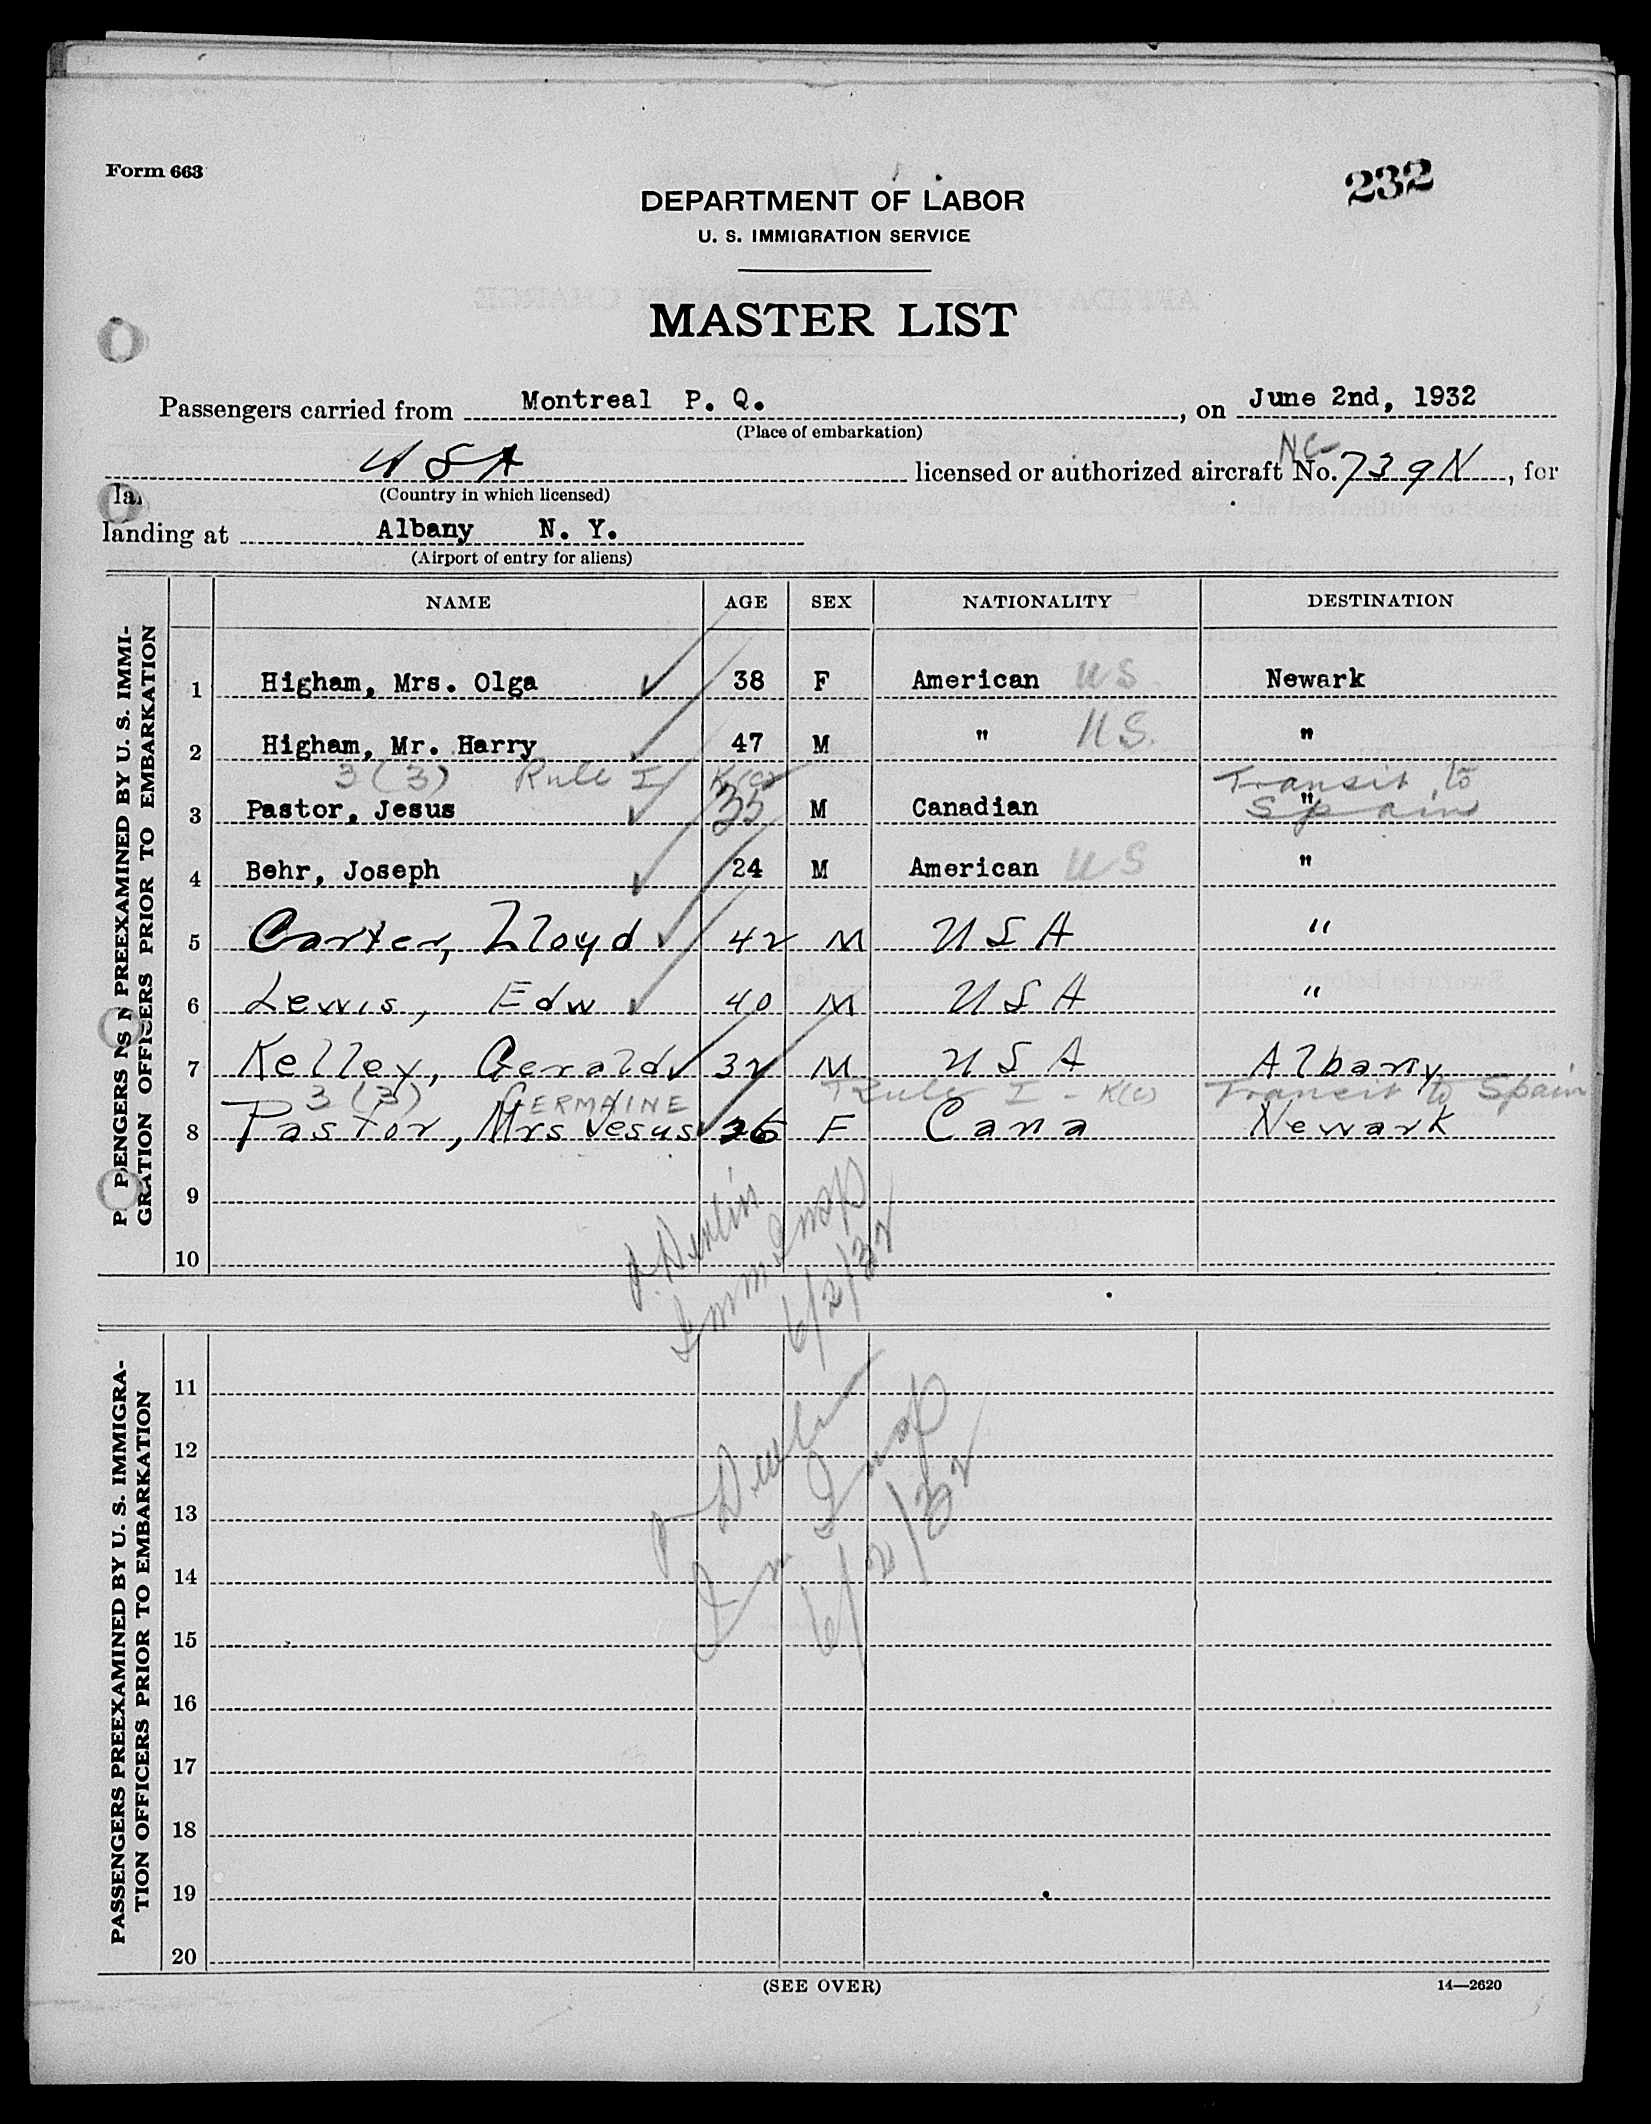 Form 663
232
DEPARTMENT OF LABOR
U. S. IMMIGRATION SERVICE
MASTER LIST
Passengers carried from Montreal P. Q., on June 2nd, 1932
(Place of embarkation)
NC-
USA licensed or authorized aircraft No. 739N, for
(Country in which licensed)
la
landing at Albany N. Y.
(Airport of entry for aliens)
NAME AGE SEX NATIONALITY DESTINATION
PASSENGERS PREEXAMINED BY U. S. IMMI-
GRATION OFFICERS PRIOR TO EMBARKATION
1 Higham, Mrs. Olga ✓ 38 F American US Newark
2 Higham, Mr. Harry ✓ 47 M " US. "
3 (3) Rule I K(c) Transit to
3 Pastor, Jesus ✓ 35 M Canadian " Spain
4 Behr, Joseph ✓ 24 M American US "
5 Carter, Lloyd ✓ 42 M USA "
6 Lewis, Edw ✓ 40 M USA "
7 Kelley, Gerald ✓ 32 M USA Albany
3 (3) GERMAINE Rule I - K(c) Transit to Spain
8 Pastor, Mrs Jesus ✓ 26 F Cana Newark
9
10
P. Devlin
Imm Insp
6/2/32
PASSENGERS PREEXAMINED BY U. S. IMMIGRA-
TION OFFICERS PRIOR TO EMBARKATION
11
12
13
14
15
16
17
18
19
20
P Devlin
Im Insp
6/2/32
(SEE OVER)
14—2620